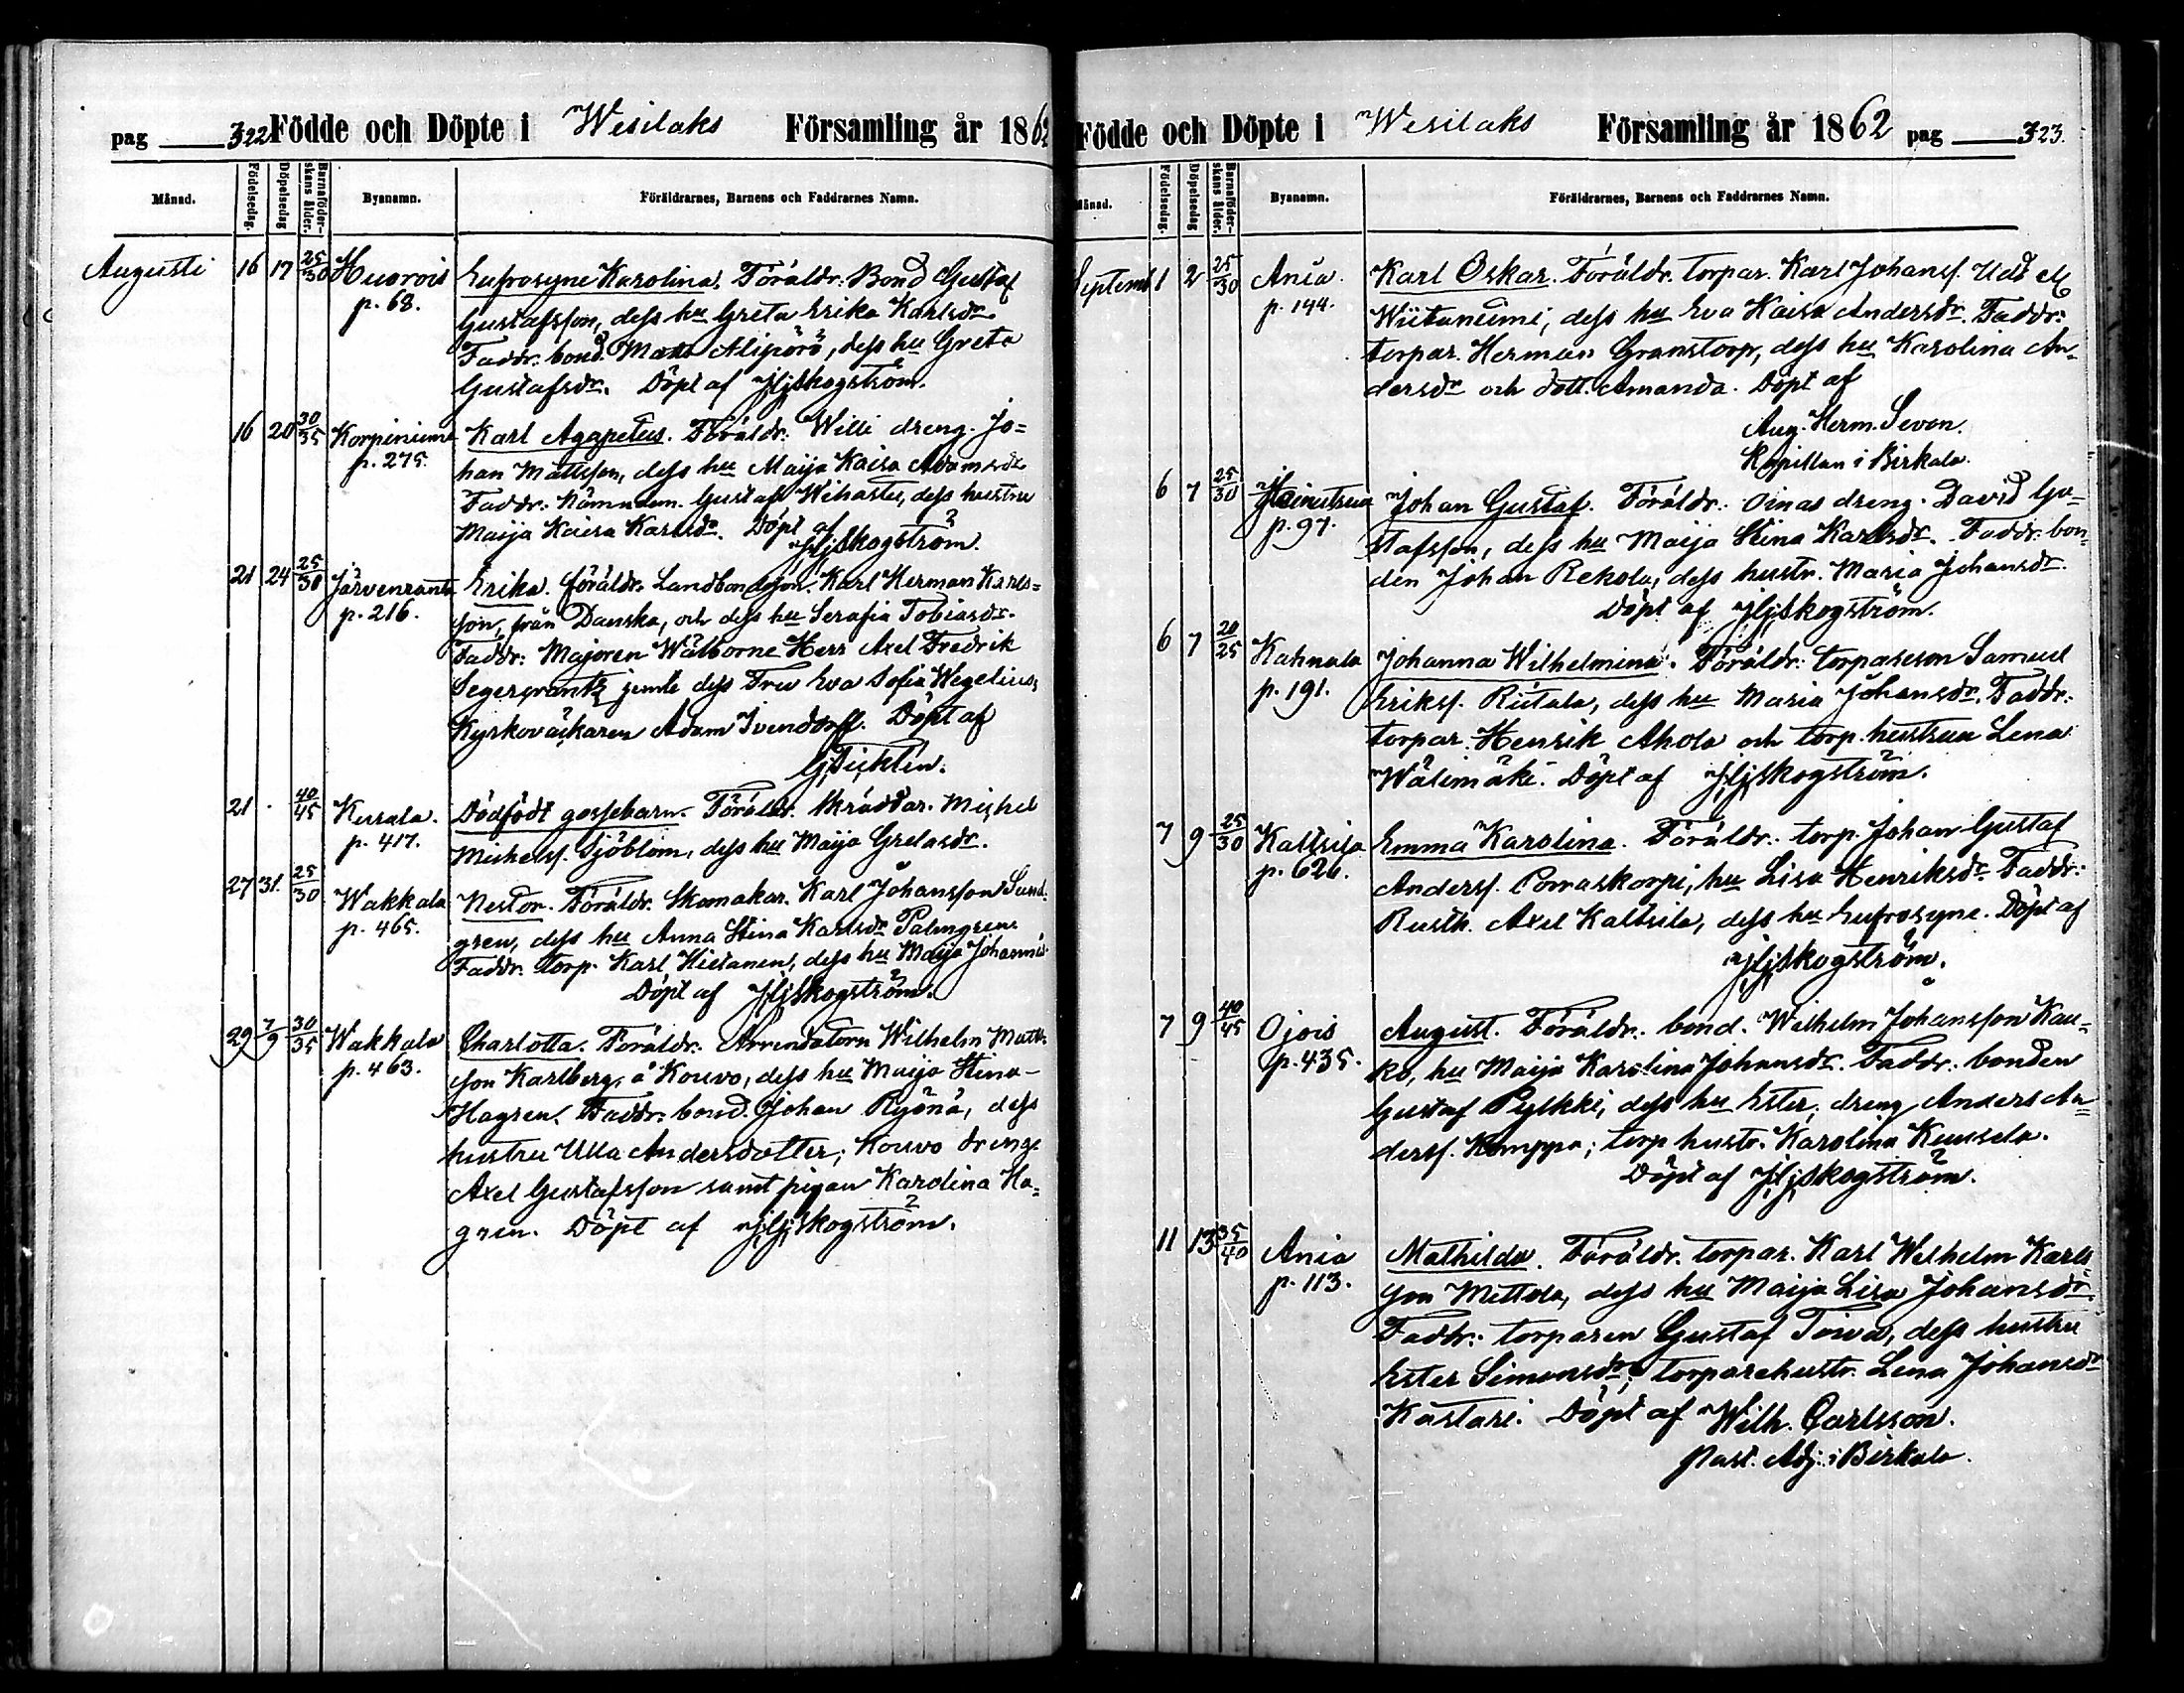 pag 322 Födde och Döpte i Wesilaks Församling år 1862
Månad. Födelsedag. Döpelsedag Barnaföderskans ålder. Bynamn. Föräldrarnes, Barnens och Faddrarnes Namn.
Augusti 16 17 25/30 Huorois Eufrosyne Karolina. Föräldr. Bond Gustaf
p. 68. Gustafsson, dess hu Greta Erika Karlsdr
Faddr. bond. Matts Alipörö, dess hu Greta
Gustafsdr. Döpt af JHjSkogström.
16 20 30/35 Korpiniemi Karl Agapetus. Föräldr. Willi dreng. Jo=
p. 275. han Mattsson, dess hu Maija Kaisa Adamsdr
Faddr. Nämndem. Gustaf Wihastu, dess hustru
Maija Kaisa Karlsdr. Döpt af
JHjSkogström.
21 24 25/30 Järvenranta Erika. föräldr. Landbondeson. Karl Herman Karls=
p. 216. son, från Danska, och dess hu Serafia Tobiasdr.
Faddr: Majoren Wälborne Herr Axel Fredrik
Segercrantz jemte dess Fru Eva Sofia Wegelius,
Kyrkoväckaren Adam Ivendorff. Döpt af
GDicklén.
21 . 40/45 Kurala. Dödfödt gossebarn. Föräldr. Skräddar. Michel
p. 417. Michelss. Sjöblom, dess hu Maija Gretasdr.
27 31. 25/30 Wakkala Nestor. Föräldr. Skomakar. Karl Johansson Sund=
p. 465. gren, dess hu Anna Stina Karlsdr Palmgren
Faddr. torp. Karl Hietanen, dess hu Maija Johansdr
Döpt af JHjSkogström.
29 7/9 30/35 Wakkala Charlotta. Föräldr. Arrendatorn Wilhelm Matts=
p. 463. son Karlberg, å Kouvo, dess hu Maija Stina
Hagren. Faddr. bond. Johan Ryönä, dess
hustru Ulla Andersdotter; Kouvo dreng.
Axel Gustafsson samt pigan Karolina Ha=
gren. Döpt af JHjSkogström.
Födde och Döpte i Wesilaks Församling år 1862 pag 323.
Månad. Födelsedag. Döpelsedag Barnaföderskans ålder. Bynamn. Föräldrarnes, Barnens och Faddrarnes Namn.
Septemb 1 2 25/30 Ania. Karl Oskar. Föräldr. torpar. Karl Johanss. Udd
p. 144. Wiitaniemi, dess hu Eva Kaisa Andersdr. Faddr:
torpar. Herman Granstorp, dess hu Karolina An=
dersdr och dott. Amanda. Döpt af
Aug. Herm. Sevon.
Kapellan i Birkala.
6 7 25/30 Johan Gustaf. Föräldr. Oinas dreng. David Gu=
p. 97. stafsson, dess hu Maija Stina Karlsdr. Faddr. bon=
den Johan Rekola, dess hustr. Maria Johansdr.
Döpt af JHjSkogström.
6 7 20/25 Kahnala Johanna Wilhelmina. Föräldr: torpareson Samuel
p. 191. Erikss. Riitala, dess hu Maria Johansdr. Faddr.
torpar. Henrik Ahola och torp. hustrun Lena
Wälimäki. Döpt af JHjSkogström.
7 9 25/30 Kaltsila Emma Karolina. Föräldr: torp. Johan Gustaf
p. 626. Anderss. Porraskorpi, hu Lisa Henriksdr. Faddr:
Rusth. Axel Kaltsila, dess hu Eufrosyne. Döpt af
JHjSkogström.
7 9 40/45 Ojois August. Föräldr. bond. Wilhelm Johansson Kau=
p. 435. ko, hu Maija Karolina Johansdr. Faddr. bonden
Gustaf Pylkki, dess hu Ester; dreng Anders An=
derss. Kamppa; torp hustr. Karolina Kuusela.
Döpt af JHjSkogström.
11 13 35/40 Ania Mathilda. Föräldr. torpar. Karl Wilhelm Karls=
p. 113. son Mettola, dess hu Maija Lisa Johansdr.
Faddr. torparen Gustaf Toiva, dess hustru
Ester Simonsdr; torparehustr. Lena Johansdr
Kastari. Döpt af Wilh. Carlsson.
Past. Adj. i Birkala.